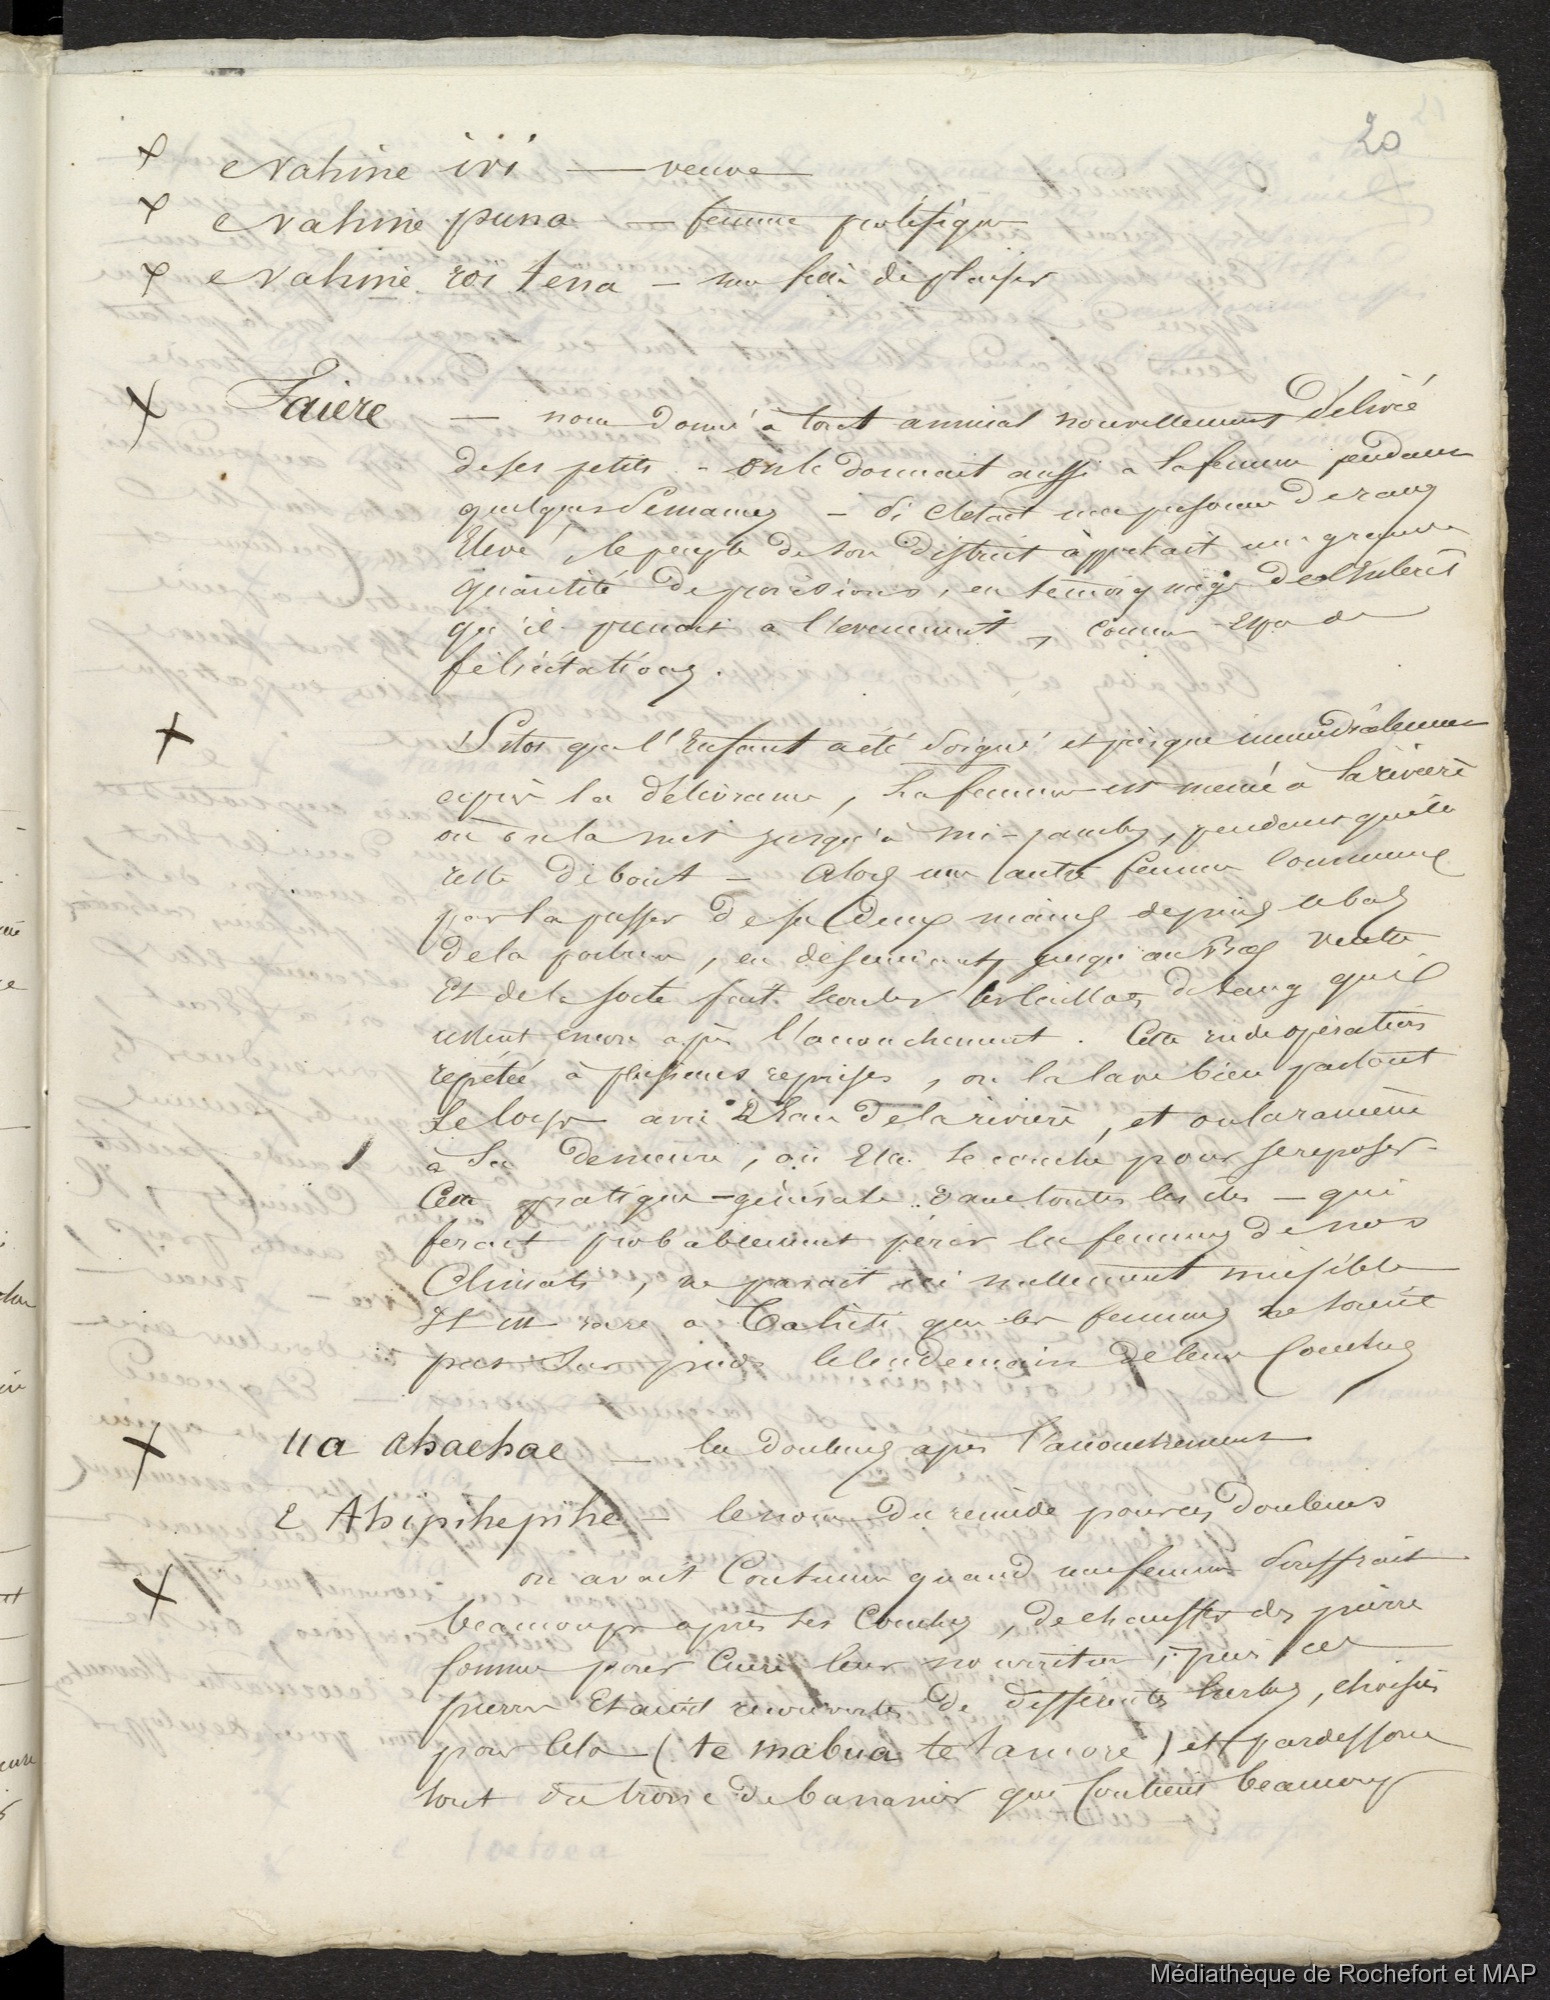 20
+ Vahine ivi — veuve
+ Vahine puna — femme prolifique
+ Vahine roi tena — une fille de plaisir
+ Faiere — nom donné à tout animal nouvellement délivré
de ses petits. - on le donnait aussi a la femme pendant
quelques semaines — Si c'etait une personne de rang
Elevé, le peuple de son district apportait une grande
quantité de provisions, en temoignage de l'interêt
qu'il prenait a l'evenement, comme de
félicitations.
+ Sitot que l'Enfant a été soigné et presque immédiatement
après la délivrance, la femme est menée à la rivière
où on la met jusqu'à mi-jambes, pendant quelle
reste debout — Alors une autre femme commence
par la passer de ses deux mains depuis le bas
de la poitrine, en descendant jusqu'au bas ventre
Et de la sorte fait écouler les caillots de sang qui
restent encore après l'accouchement. Cette rude opération
repétée à plusieurs reprises, on la lave bien partout
le corps avec l'Eau de la rivière, et on la ramène
à sa demeure, où Elle se couche pour se reposer -
Cette pratique — générale dans toutes les iles — qui
ferait probablement périr les femmes de nos
Climats, ne parait ici nullement nuisible
Il est rare a Tahiti que les femmes ne soient
pas sur pieds le lendemain de leurs Couches
+ ua ahaehae — les douleurs après l'accouchement
E Ahipihepihe — le nom du remède pour ces douleurs
+ on avait Coutume quand une femme souffrait
beaucoup après ses Couches, de chauffer des pierre
comme pour Cuire leur nourriture, puis ces
pierres Etaient recouvertes de differentes herbes, choisies
pour Cela (te mabua te tamore) et par dessous
tout du tronc de bananier qui Contient beaucoup
Médiathèque de Rochefort et MAP